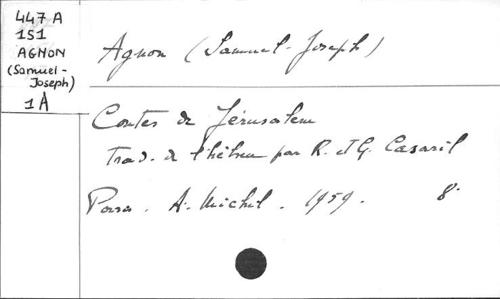 447 A
151
AGNON
(Samuel-
Joseph)
1A
Agnon (Samuel-Joseph)
Contes de Jérusalem
Trad. de l'hébreu par R. et G. Casaril
Paris. A. Michel. 1959. 8°